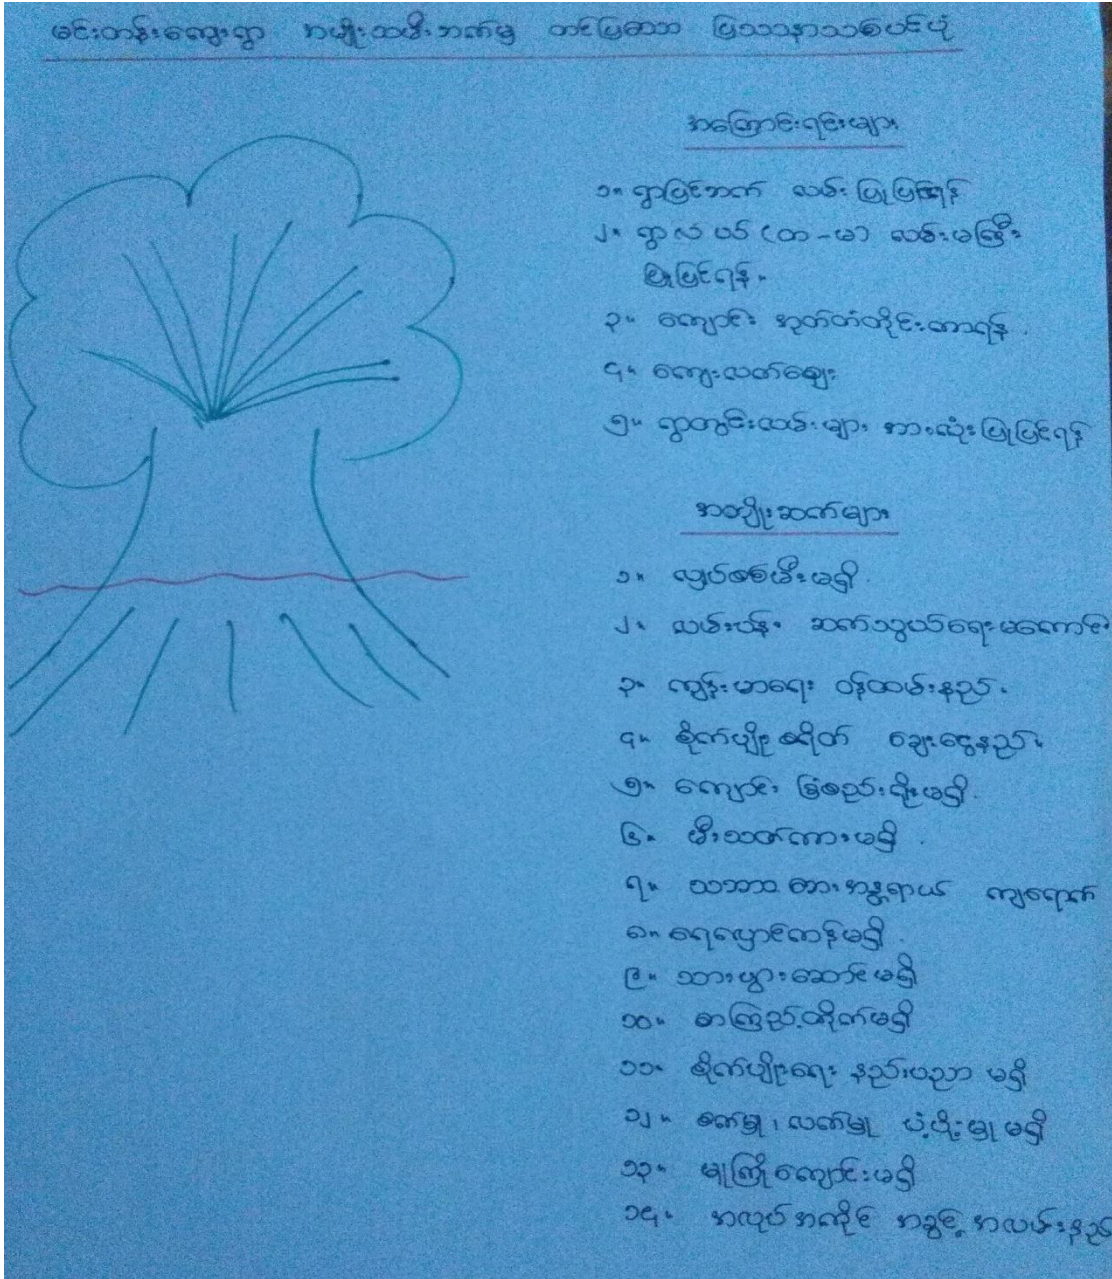 မင်းတန်းကျေးရွာ အမျိုးသမီးဘက်မှ တင်ပြသော ပြဿနာသစ်ပင်ပုံ
အကြောင်းရင်းများ
၁။ ရွာပြင်ဘက် လမ်း ပြုပြင်ရန်
၂။ ရွာလယ် (တ-မ) လမ်းမကြီး
ပြုပြင်ရန်။
၃။ ကျောင်း အုတ်တံတိုင်းကာရန်.
၄။ ကျေးလက်ဈေး
၅။ ရွာတွင်းလမ်းများ အားလုံးပြုပြင်ရန်
အကျိုးဆက်များ
၁။ လျှပ်စစ်မီးမရှိ.
၂။ လမ်းပန်း ဆက်သွယ်ရေးမကောင်း
၃။ ကျန်းမာရေး ဝန်ထမ်းနည်း.
၄။ စိုက်ပျိုးစရိတ် ချေးငွေနည်း
၅။ ကျောင်း ခြံစည်းရိုးမရှိ.
၆။ မီးသတ်ကားမရှိ.
၇။ သဘာဝဘေးအန္တရာယ် ကျရောက်
၈။ ရေလှောင်ကန်မရှိ.
၉။ သားဖွားဆောင်မရှိ
၁၀။ စာကြည့်တိုက်မရှိ
၁၁။ စိုက်ပျိုးရေး နည်းပညာ မရှိ
၁၂။ စက်မှု၊ လက်မှု ပံ့ပိုးမှု မရှိ
၁၃။ မူကြိုကျောင်းမရှိ
၁၄။ အလုပ်အကိုင် အခွင့်အလမ်းနည်း